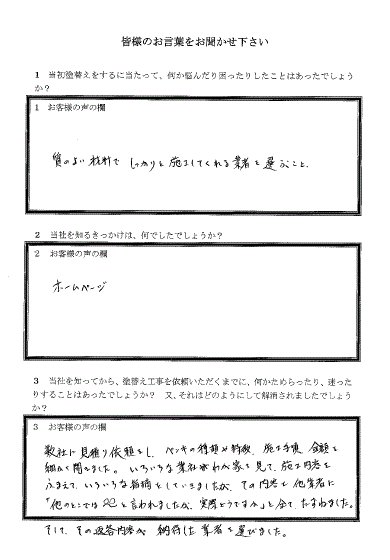 皆様のお言葉をお聞かせ下さい
1 当初塗替えをするに当たって、何か悩んだり困ったりしたことはあったでしょう
か?
1 お客様の声の欄
質のよい材料で しっかりと施工してくれる業者を選ぶこと。
2 当社を知るきっかけは、何でしたでしょうか?
2 お客様の声の欄
ホームページ
3 当社を知ってから、塗替え工事を依頼いただくまでに、何かためらったり、迷った
りすることはあったでしょうか? 又、それはどのようにして解消されましたでしょう
か?
3 お客様の声の欄
数社に見積り依頼をし、ペンキの種類や特徴、施工手順、金額を
細かく聞きました。いろいろな業社がわが家を見て、施工内容を
ふまえて、いろいろな指摘をしていきましたが、その内容を他業者に
「他のところでは〇〇と言われましたが、実際どうですか」と全て、たずねました。
そして、その返答内容が 納得した業者を選びました。